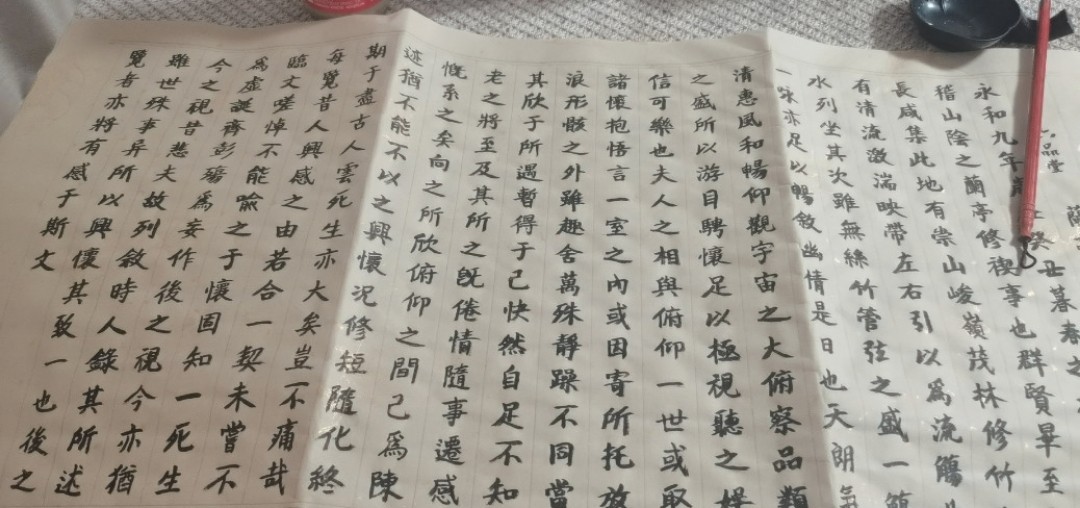 六品堂
蘭
永和九年歲癸丑暮春之
稽山陰之蘭亭修禊事也群賢畢至
長咸集此地有崇山峻嶺茂林修竹
有清流激湍映帶左右引以為流觴
水列坐其次雖無絲竹管弦之盛一觴
一咏亦足以暢敘幽情是日也天朗氣
清惠風和暢仰觀宇宙之大俯察品類
之盛所以游目騁懷足以極視聽之娛
信可樂也夫人之相與俯仰一世或取
諸懷抱悟言一室之內或因寄所托放
浪形骸之外雖趣舍萬殊靜躁不同當
其欣于所遇暫得于己快然自足不知
老之將至及其所之既倦情隨事遷感
慨系之矣向之所欣俯仰之間已為陳
迹猶不能不以之興懷況修短隨化終
期于盡古人雲死生亦大矣豈不痛哉
每覽昔人興感之由若合一契未嘗不
臨文嗟悼不能喻之于懷固知一死生
為虛誕齊彭殤為妄作後之視今亦猶
今之視昔悲夫故列敘時人錄其所述
雖世殊事異所以興懷其致一也後之
覽者亦將有感于斯文